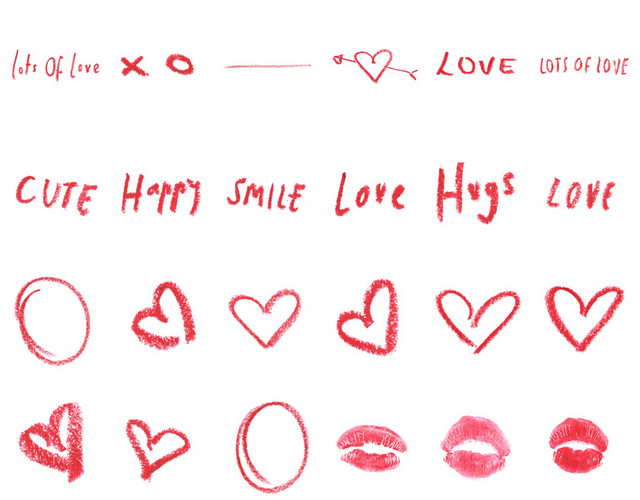 lots Of love X O LOVE LOTS OF LOVE
CUTE Happy SMILE Love Hugs LOVE